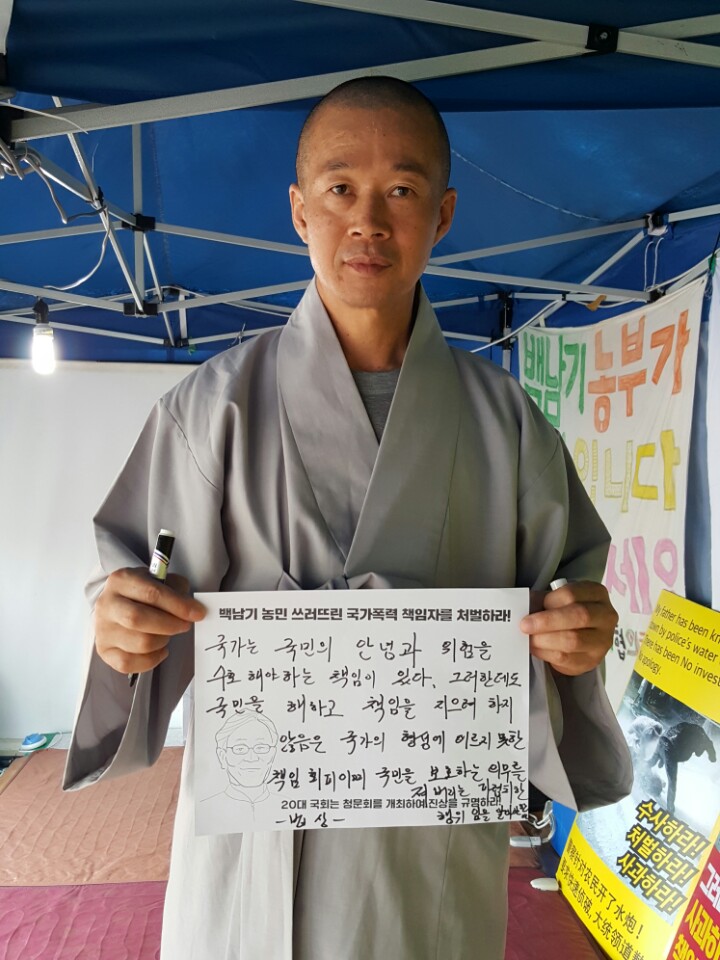 백남기 농부가
입니다
세우
백남기 농민 쓰러뜨린 국가폭력 책임자를 처벌하라!
국가는 국민의 안녕과 위험을
수호해야하는 책임이 있다. 그러한데도
국민을 해하고 책임을 지으려 하지
않음은 국가의 형성에 이르지 못한
책임 회피이며 국민을 보호하는 의무를
져버리는
20대 국회는 청문회를 개최하여 진상을 규명하라!
행위 임을
-법상-
father has been kno
by police's water
here has been No invest
pology.
수사하라!
처벌하라!
사과하라!
针对农民开了水炮！
大统领道
사과하
책임